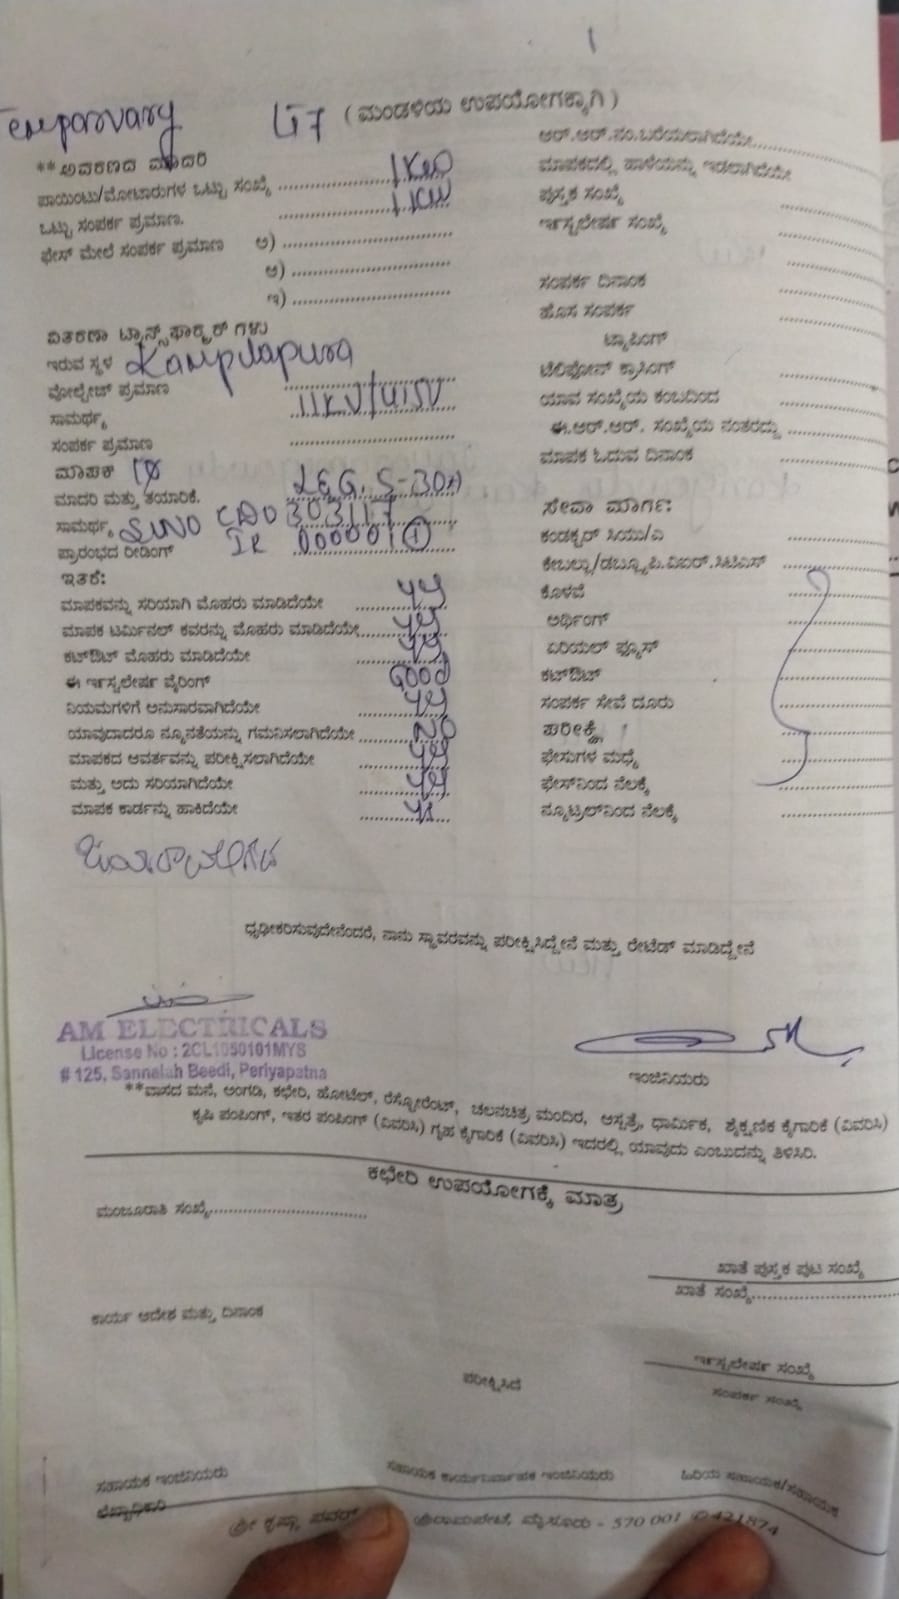 1
Temporary LT7 (ಮಂಡಳಿಯ ಉಪಯೋಗಕ್ಕಾಗಿ)
**ಆವರಣದ ಮಾದರಿ
ಪಾಯಿಂಟು/ಮೋಟಾರುಗಳ ಒಟ್ಟು ಸಂಖ್ಯೆ 1KW
ಒಟ್ಟು ಸಂಪರ್ಕ ಪ್ರಮಾಣ. 1KW
ಫೇಸ್ ಮೇಲೆ ಸಂಪರ್ಕ ಪ್ರಮಾಣ ಅ)
ಆ)
ಇ)
ವಿತರಣಾ ಟ್ರಾನ್ಸ್‌ಫಾರ್ಮರ್ ಗಳು
ಇರುವ ಸ್ಥಳ Kampulapura
ವೋಲ್ಟೇಜ್ ಪ್ರಮಾಣ
ಸಾಮರ್ಥ್ಯ 11KV/415V
ಸಂಪರ್ಕ ಪ್ರಮಾಣ
ಮಾಪಕ 1Φ
ಮಾದರಿ ಮತ್ತು ತಯಾರಿಕೆ. L&G, 5-30A
ಸಾಮರ್ಥ್ಯ SLNO
ಪ್ರಾರಂಭದ ರೀಡಿಂಗ್ IR 000001 ①
ಇತರೆ:
ಮಾಪಕವನ್ನು ಸರಿಯಾಗಿ ಮೊಹರು ಮಾಡಿದೆಯೇ
ಮಾಪಕ ಟರ್ಮಿನಲ್ ಕವರನ್ನು ಮೊಹರು ಮಾಡಿದೆಯೇ
ಕಟ್‌ಔಟ್ ಮೊಹರು ಮಾಡಿದೆಯೇ
ಈ ಇನ್ಸ್ಟಲೇಷನ್ ವೈರಿಂಗ್ good
ನಿಯಮಗಳಿಗೆ ಅನುಸಾರವಾಗಿದೆಯೇ
ಯಾವುದಾದರೂ ನ್ಯೂನತೆಯನ್ನು ಗಮನಿಸಲಾಗಿದೆಯೇ no
ಮಾಪಕದ ಆವರ್ತವನ್ನು ಪರೀಕ್ಷಿಸಲಾಗಿದೆಯೇ
ಮತ್ತು ಅದು ಸರಿಯಾಗಿದೆಯೇ
ಮಾಪಕ ಕಾರ್ಡನ್ನು ಹಾಕಿದೆಯೇ
ಆರ್.ಆರ್.ನಂ.ಬರೆಯಲಾಗಿದೆಯೇ
ಮಾಪಕದಲ್ಲಿ ಹಾಳೆಯನ್ನು ಇಡಲಾಗಿದೆಯೇ
ಪುಸ್ತಕ ಸಂಖ್ಯೆ
ಇನ್ಸ್ಟಲೇಷನ್ ಸಂಖ್ಯೆ
ಸಂಪರ್ಕ ದಿನಾಂಕ
ಹೊಸ ಸಂಪರ್ಕ
ಟ್ಯಾಪಿಂಗ್
ಟೆಲಿಫೋನ್ ಕ್ರಾಸಿಂಗ್
ಯಾವ ಸಂಖ್ಯೆಯ ಕಂಬದಿಂದ
ಈ.ಆರ್.ಆರ್. ಸಂಖ್ಯೆಯ ನಂತರದ್ದು
ಮಾಪಕ ಓದುವ ದಿನಾಂಕ
ಸೇವಾ ಮಾರ್ಗ:
ಕಂಡಕ್ಟರ್ ಸಿಯು/ಎ
ಕೇಬಲ್ಲು/ಡಬ್ಲ್ಯೂ.ಪಿ.ವಿಐಆರ್.ಸಿಟಿಎಸ್
ಕೊಳವೆ
ಅರ್ಥಿಂಗ್
ಏರಿಯಲ್ ಫ್ಯೂಸ್
ಕಟ್‌ಔಟ್
ಸಂಪರ್ಕ ಸೇವೆ ದೂರು
ಪರೀಕ್ಷೆ
ಫೇಸುಗಳ ಮಧ್ಯೆ
ಫೇಸ್‌ನಿಂದ ನೆಲಕ್ಕೆ
ನ್ಯೂಟ್ರಲ್‌ನಿಂದ ನೆಲಕ್ಕೆ
ಧೃಢೀಕರಿಸುವುದೇನೆಂದರೆ, ನಾನು ಸ್ಥಾವರವನ್ನು ಪರೀಕ್ಷಿಸಿದ್ದೇನೆ ಮತ್ತು ರೇಟೆಡ್ ಮಾಡಿದ್ದೇನೆ
AM ELECTRICALS
License No : 2CL1050101MYS
# 125, Sannaiah Beedi, Periyapatna
ಇಂಜಿನಿಯರು
**ವಾಸದ ಮನೆ, ಅಂಗಡಿ, ಕಛೇರಿ, ಹೋಟೆಲ್, ರೆಸ್ಟೋರೆಂಟ್, ಚಲನಚಿತ್ರ ಮಂದಿರ, ಆಸ್ಪತ್ರೆ, ಧಾರ್ಮಿಕ, ಶೈಕ್ಷಣಿಕ ಕೈಗಾರಿಕೆ (ವಿವರಿಸಿ)
ಕೃಷಿ ಪಂಪಿಂಗ್, ಇತರ ಪಂಪಿಂಗ್ (ವಿವರಿಸಿ) ಗೃಹ ಕೈಗಾರಿಕೆ (ವಿವರಿಸಿ) ಇದರಲ್ಲಿ ಯಾವುದು ಎಂಬುದನ್ನು ತಿಳಿಸಿರಿ.
ಕಛೇರಿ ಉಪಯೋಗಕ್ಕೆ ಮಾತ್ರ
ಮಂಜೂರಾತಿ ಸಂಖ್ಯೆ
ಖಾತೆ ಪುಸ್ತಕ ಪುಟ ಸಂಖ್ಯೆ
ಖಾತೆ ಸಂಖ್ಯೆ
ಕಾರ್ಯ ಆದೇಶ ಮತ್ತು ದಿನಾಂಕ
ಇನ್ಸ್ಟಲೇಷನ್ ಸಂಖ್ಯೆ
ಪರೀಕ್ಷಿಸಿದೆ
ಸಂಪರ್ಕ ಸಂಖ್ಯೆ
ಸಹಾಯಕ ಇಂಜಿನಿಯರು
ಸಹಾಯಕ ಕಾರ್ಯನಿರ್ವಾಹಕ ಇಂಜಿನಿಯರು
ಹಿರಿಯ ಸಹಾಯಕ/ಸಹಾಯಕ
ಲೆಕ್ಕಾಧಿಕಾರಿ
ಶ್ರೀ ಕೃಷ್ಣಾ ಪವರ್ ಶ್ರೀರಾಮಪೇಟೆ, ಮೈಸೂರು - 570 001 ✆ 421874